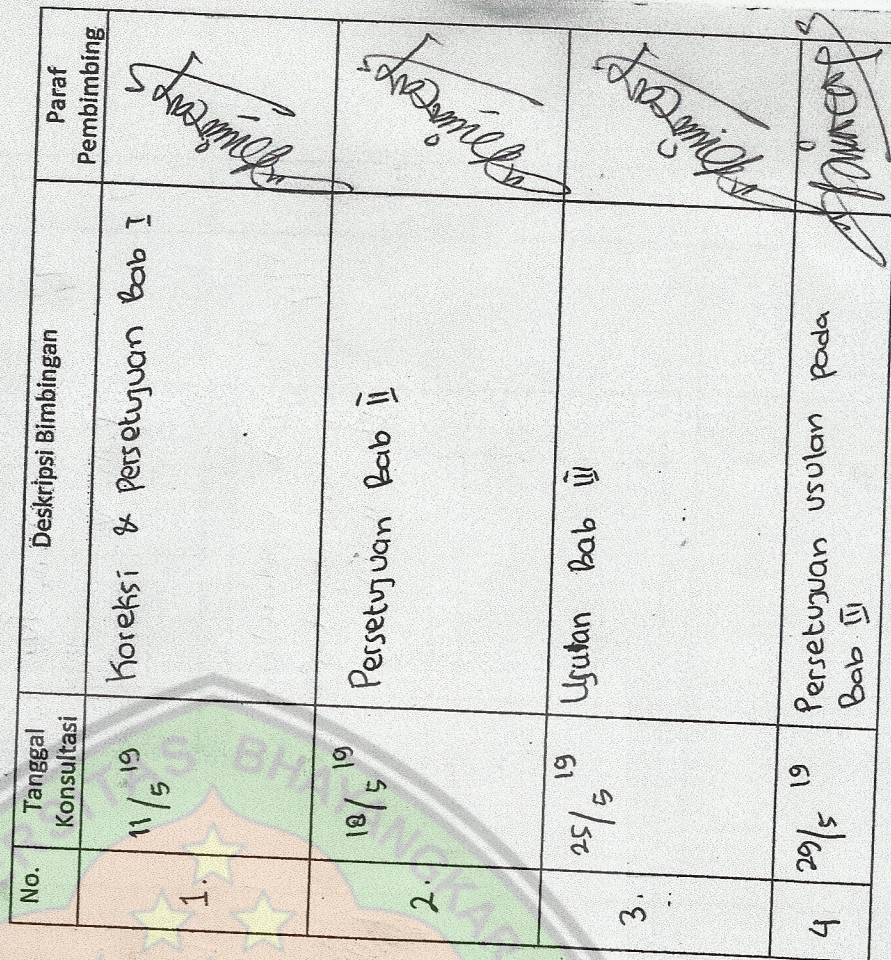 No.
Tanggal
Konsultasi
Deskripsi Bimbingan
Paraf
Pembimbing
1.
11/5 19
Koreksi & Persetujuan Bab I
2.
18/5 19
Persetujuan Bab II
3.
25/5 19
Bab III
4
29/5 19
Persetujuan usulan pada
Bab III
BHAYANGKAR